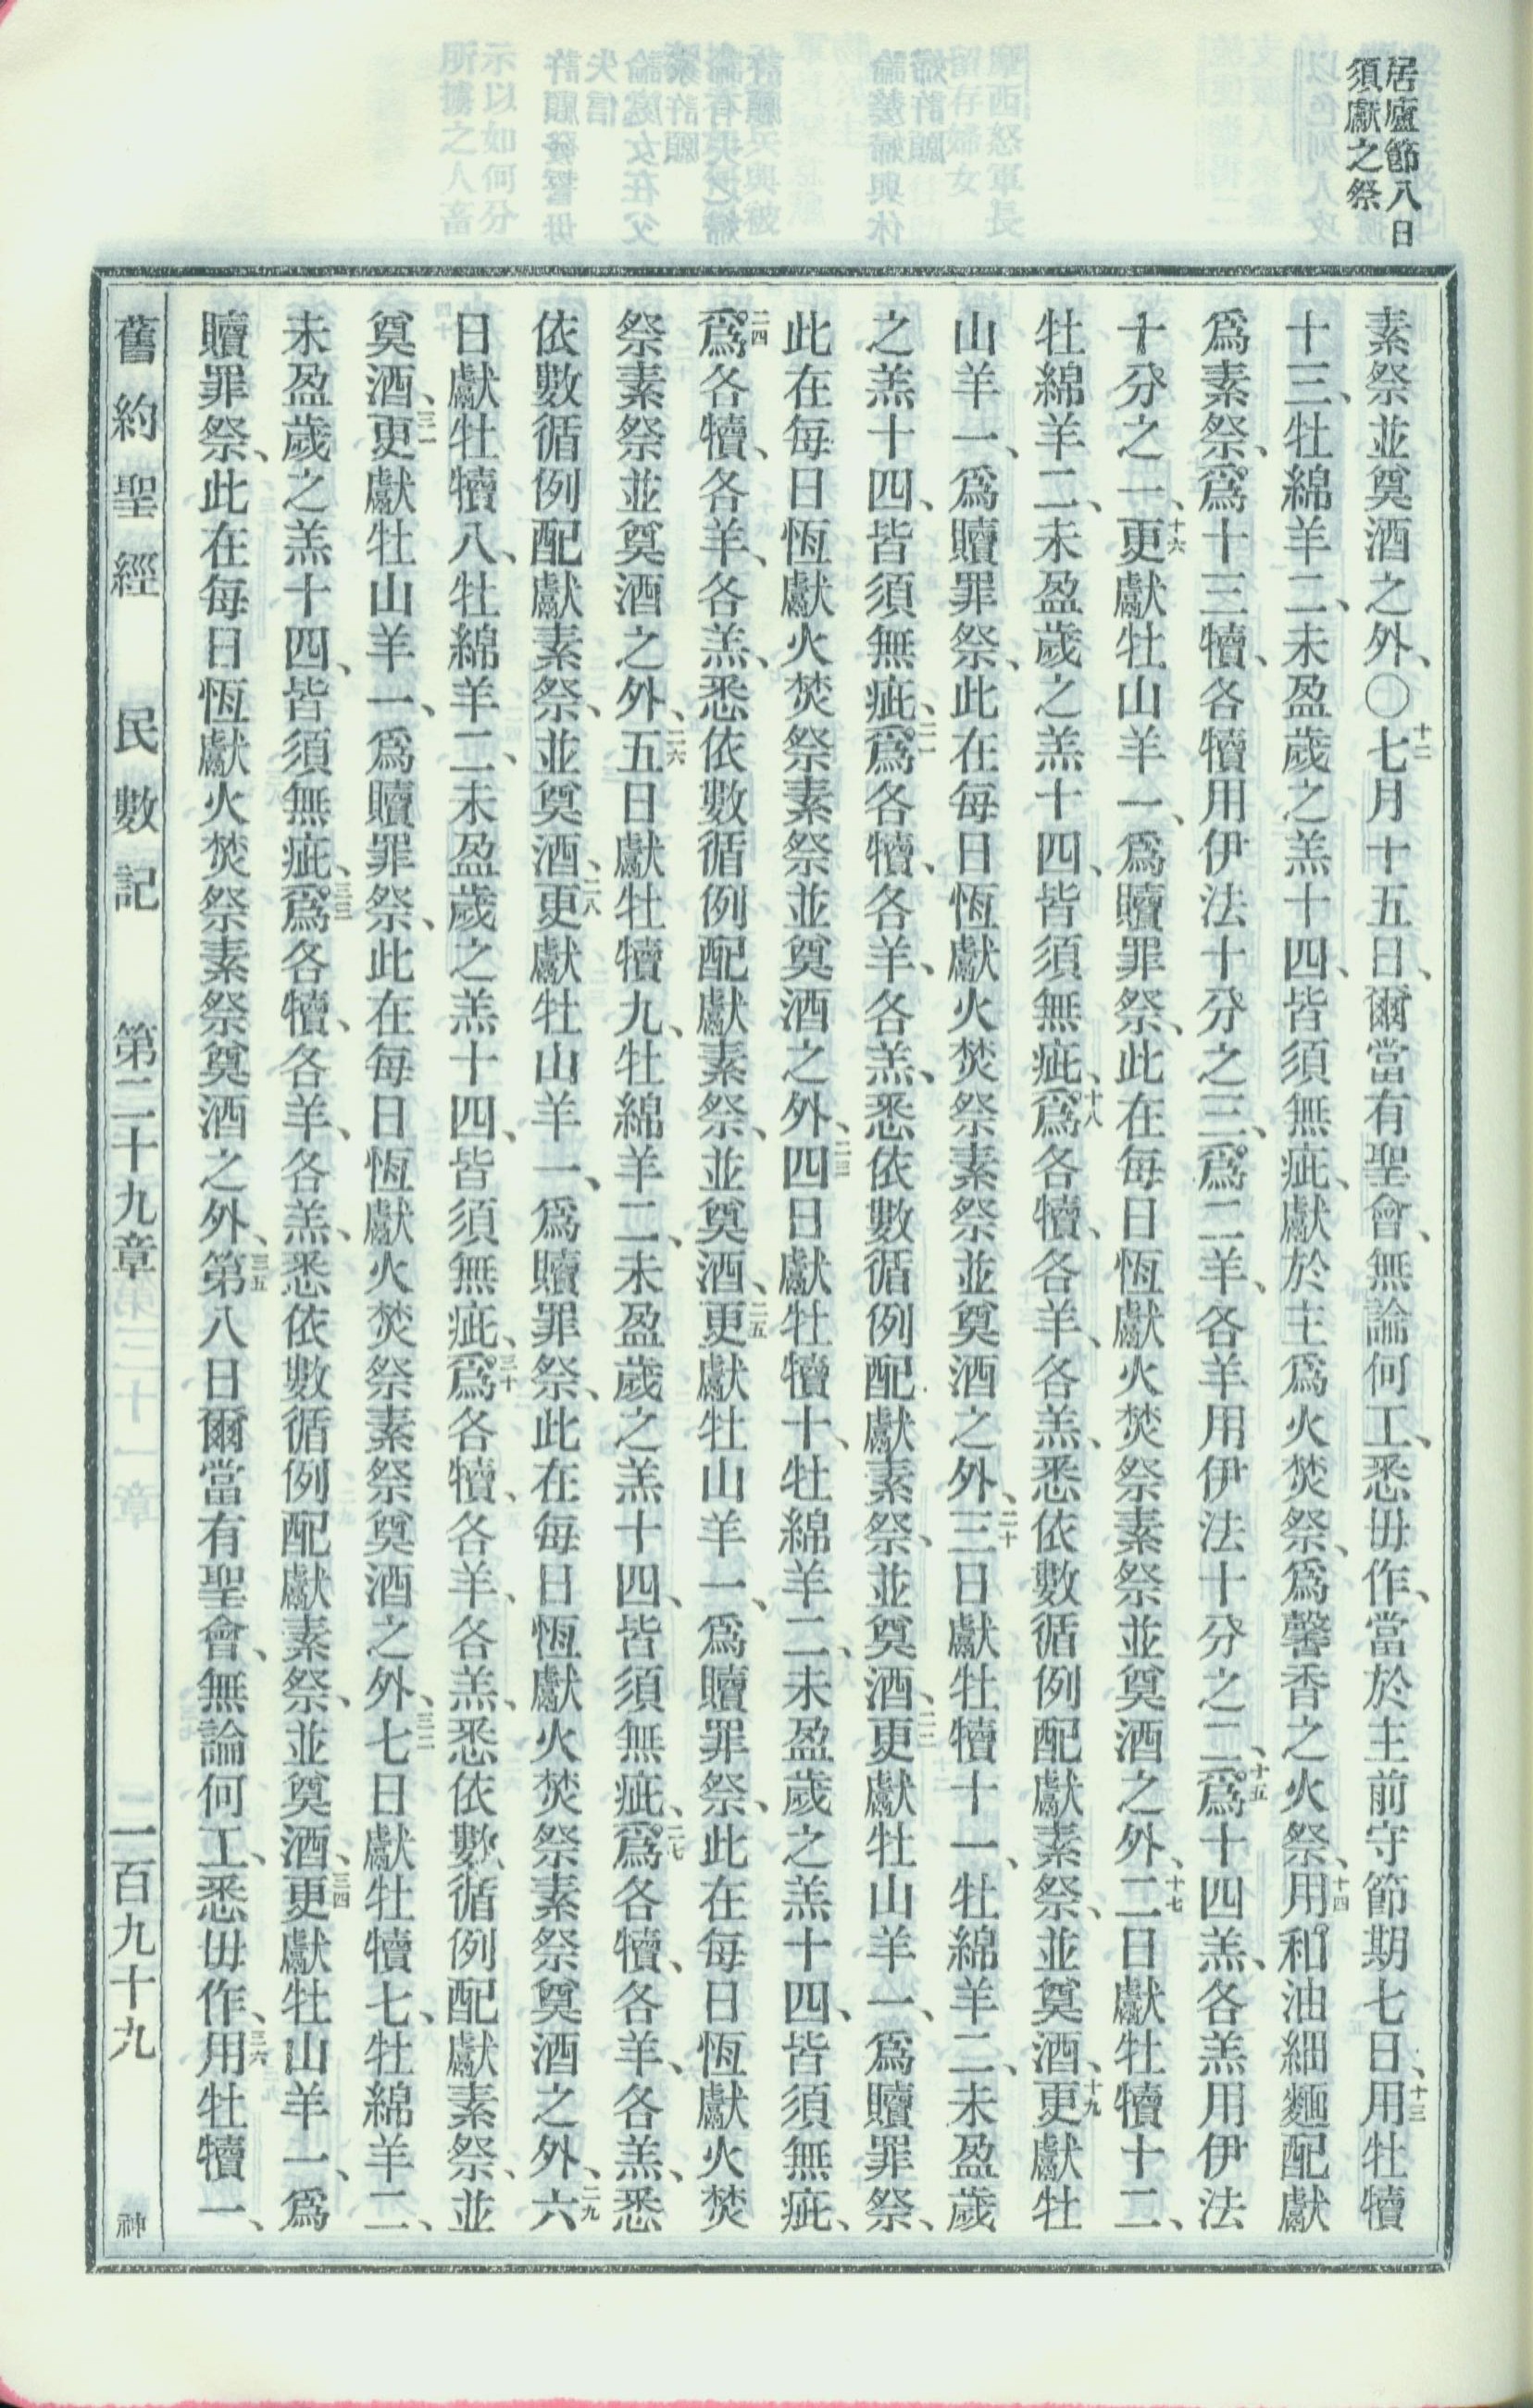 居廬節八日
須獻之祭
素祭並奠酒之外、〇十二七月十五日、爾當有聖會、無論何工、悉毋作、當於主前守節期七日、十三用牡犢
十三、牡綿羊二、未盈歲之羔十四、皆須無疵、獻於主爲火焚祭、爲馨香之火祭、十四用和油細麵配獻
爲素祭、爲十三犢、各犢用伊法十分之三、爲二羊、各羊用伊法十分之二、十五爲十四羔、各羔用伊法
十分之一、十六更獻牡山羊一、爲贖罪祭、此在每日恆獻火焚祭素祭並奠酒之外、十七二日獻牡犢十二、
牡綿羊二、未盈歲之羔十四、皆須無疵、十八爲各犢、各羊、各羔、悉依數循例配獻素祭、並奠酒、十九更獻牡
山羊一、爲贖罪祭、此在每日恆獻火焚祭素祭並奠酒之外、二十三日獻牡犢十一、牡綿羊二、未盈歲
之羔十四、皆須無疵、二一爲各犢、各羊、各羔、悉依數循例配獻素祭、並奠酒、二二更獻牡山羊一、爲贖罪祭、
此在每日恆獻火焚祭素祭並奠酒之外、二三四日獻牡犢十、牡綿羊二、未盈歲之羔十四、皆須無疵、
二四爲各犢、各羊、各羔、悉依數循例配獻素祭、並奠酒、二五更獻牡山羊一、爲贖罪祭、此在每日恆獻火焚
祭素祭並奠酒之外、二六五日獻牡犢九、牡綿羊二、未盈歲之羔十四、皆須無疵、二七爲各犢、各羊、各羔、悉
依數循例配獻素祭、並奠酒、二八更獻牡山羊一、爲贖罪祭、此在每日恆獻火焚祭素祭奠酒之外、二九六
日獻牡犢八、牡綿羊二、未盈歲之羔十四、皆須無疵、三十爲各犢、各羊、各羔、悉依數、循例配獻素祭、並
奠酒、三一更獻牡山羊一、爲贖罪祭、此在每日恆獻火焚祭素祭奠酒之外、三二七日獻牡犢七、牡綿羊二、
未盈歲之羔十四、皆須無疵、三三爲各犢、各羊、各羔、悉依數循例配獻素祭、並奠酒、三四更獻牡山羊一、爲
贖罪祭、此在每日恆獻火焚祭素祭奠酒之外、三五第八日爾當有聖會、無論何工、悉毋作、三六用牡犢一、
舊約聖經　民數記　第二十九章　二百九十九　神